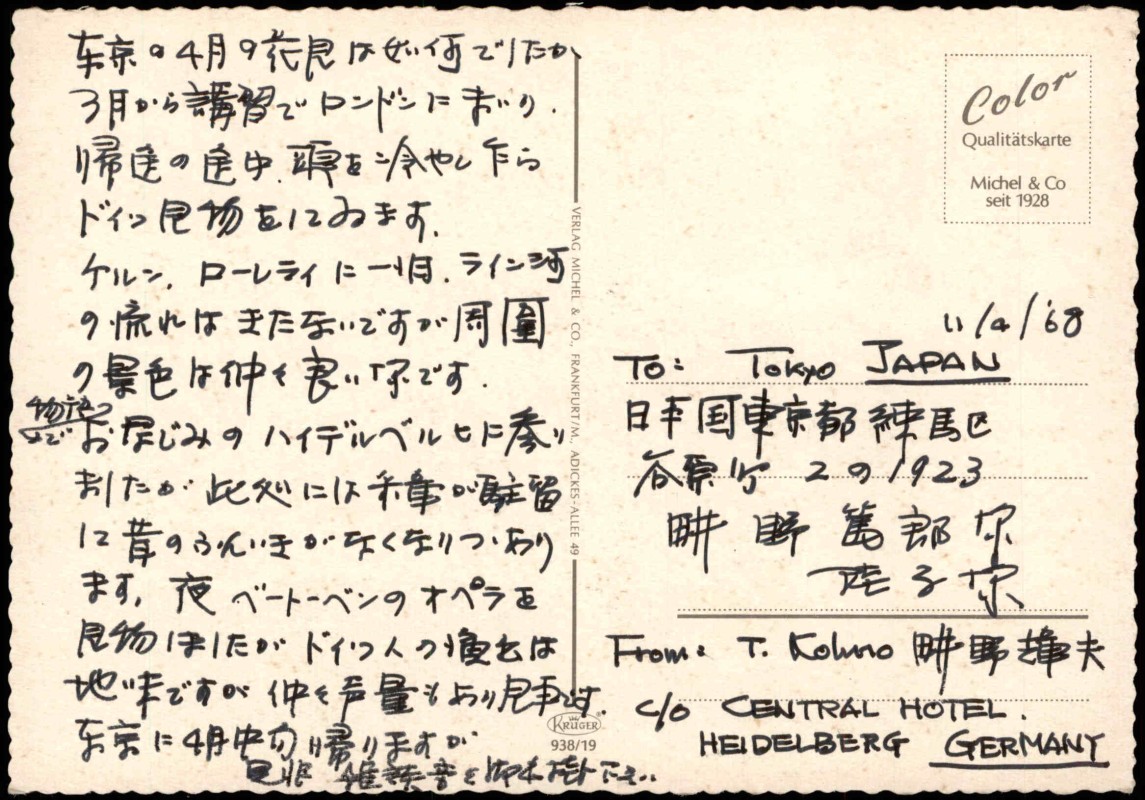 東京の4月の花見は如何でしたか
3月から講習でロンドンにまいり.
帰途の途中.頭を冷やし乍ら
ドイツ見物をしてゐます.
ケルン.ローレライに一日.ライン河
の流れはきたないですが周囲
の景色は仲々良い様です.
お馴じみのハイデルベルヒに参り
ましたが此処には米軍が駐留
して昔のふんいきがなくなりつゝあり
ます.夜ベートーベンのオペラを
見物しましたがドイツ人の演出は
地味ですが仲々声量もあり見事です.
東京に4月中旬帰りますが
是非
下さい..
Color
Qualitätskarte
Michel & Co
seit 1928
VERLAG MICHEL & CO., FRANKFURT/M., ADICKES-ALLEE 49
KRÜGER
938/19
11/4/'68
TO: Tokyo JAPAN
日本国東京都練馬区
谷原町 2の1923
畊野篤郎様
陸子様
From: T. Kohno 畊野雄夫
c/o CENTRAL HOTEL.
HEIDELBERG GERMANY